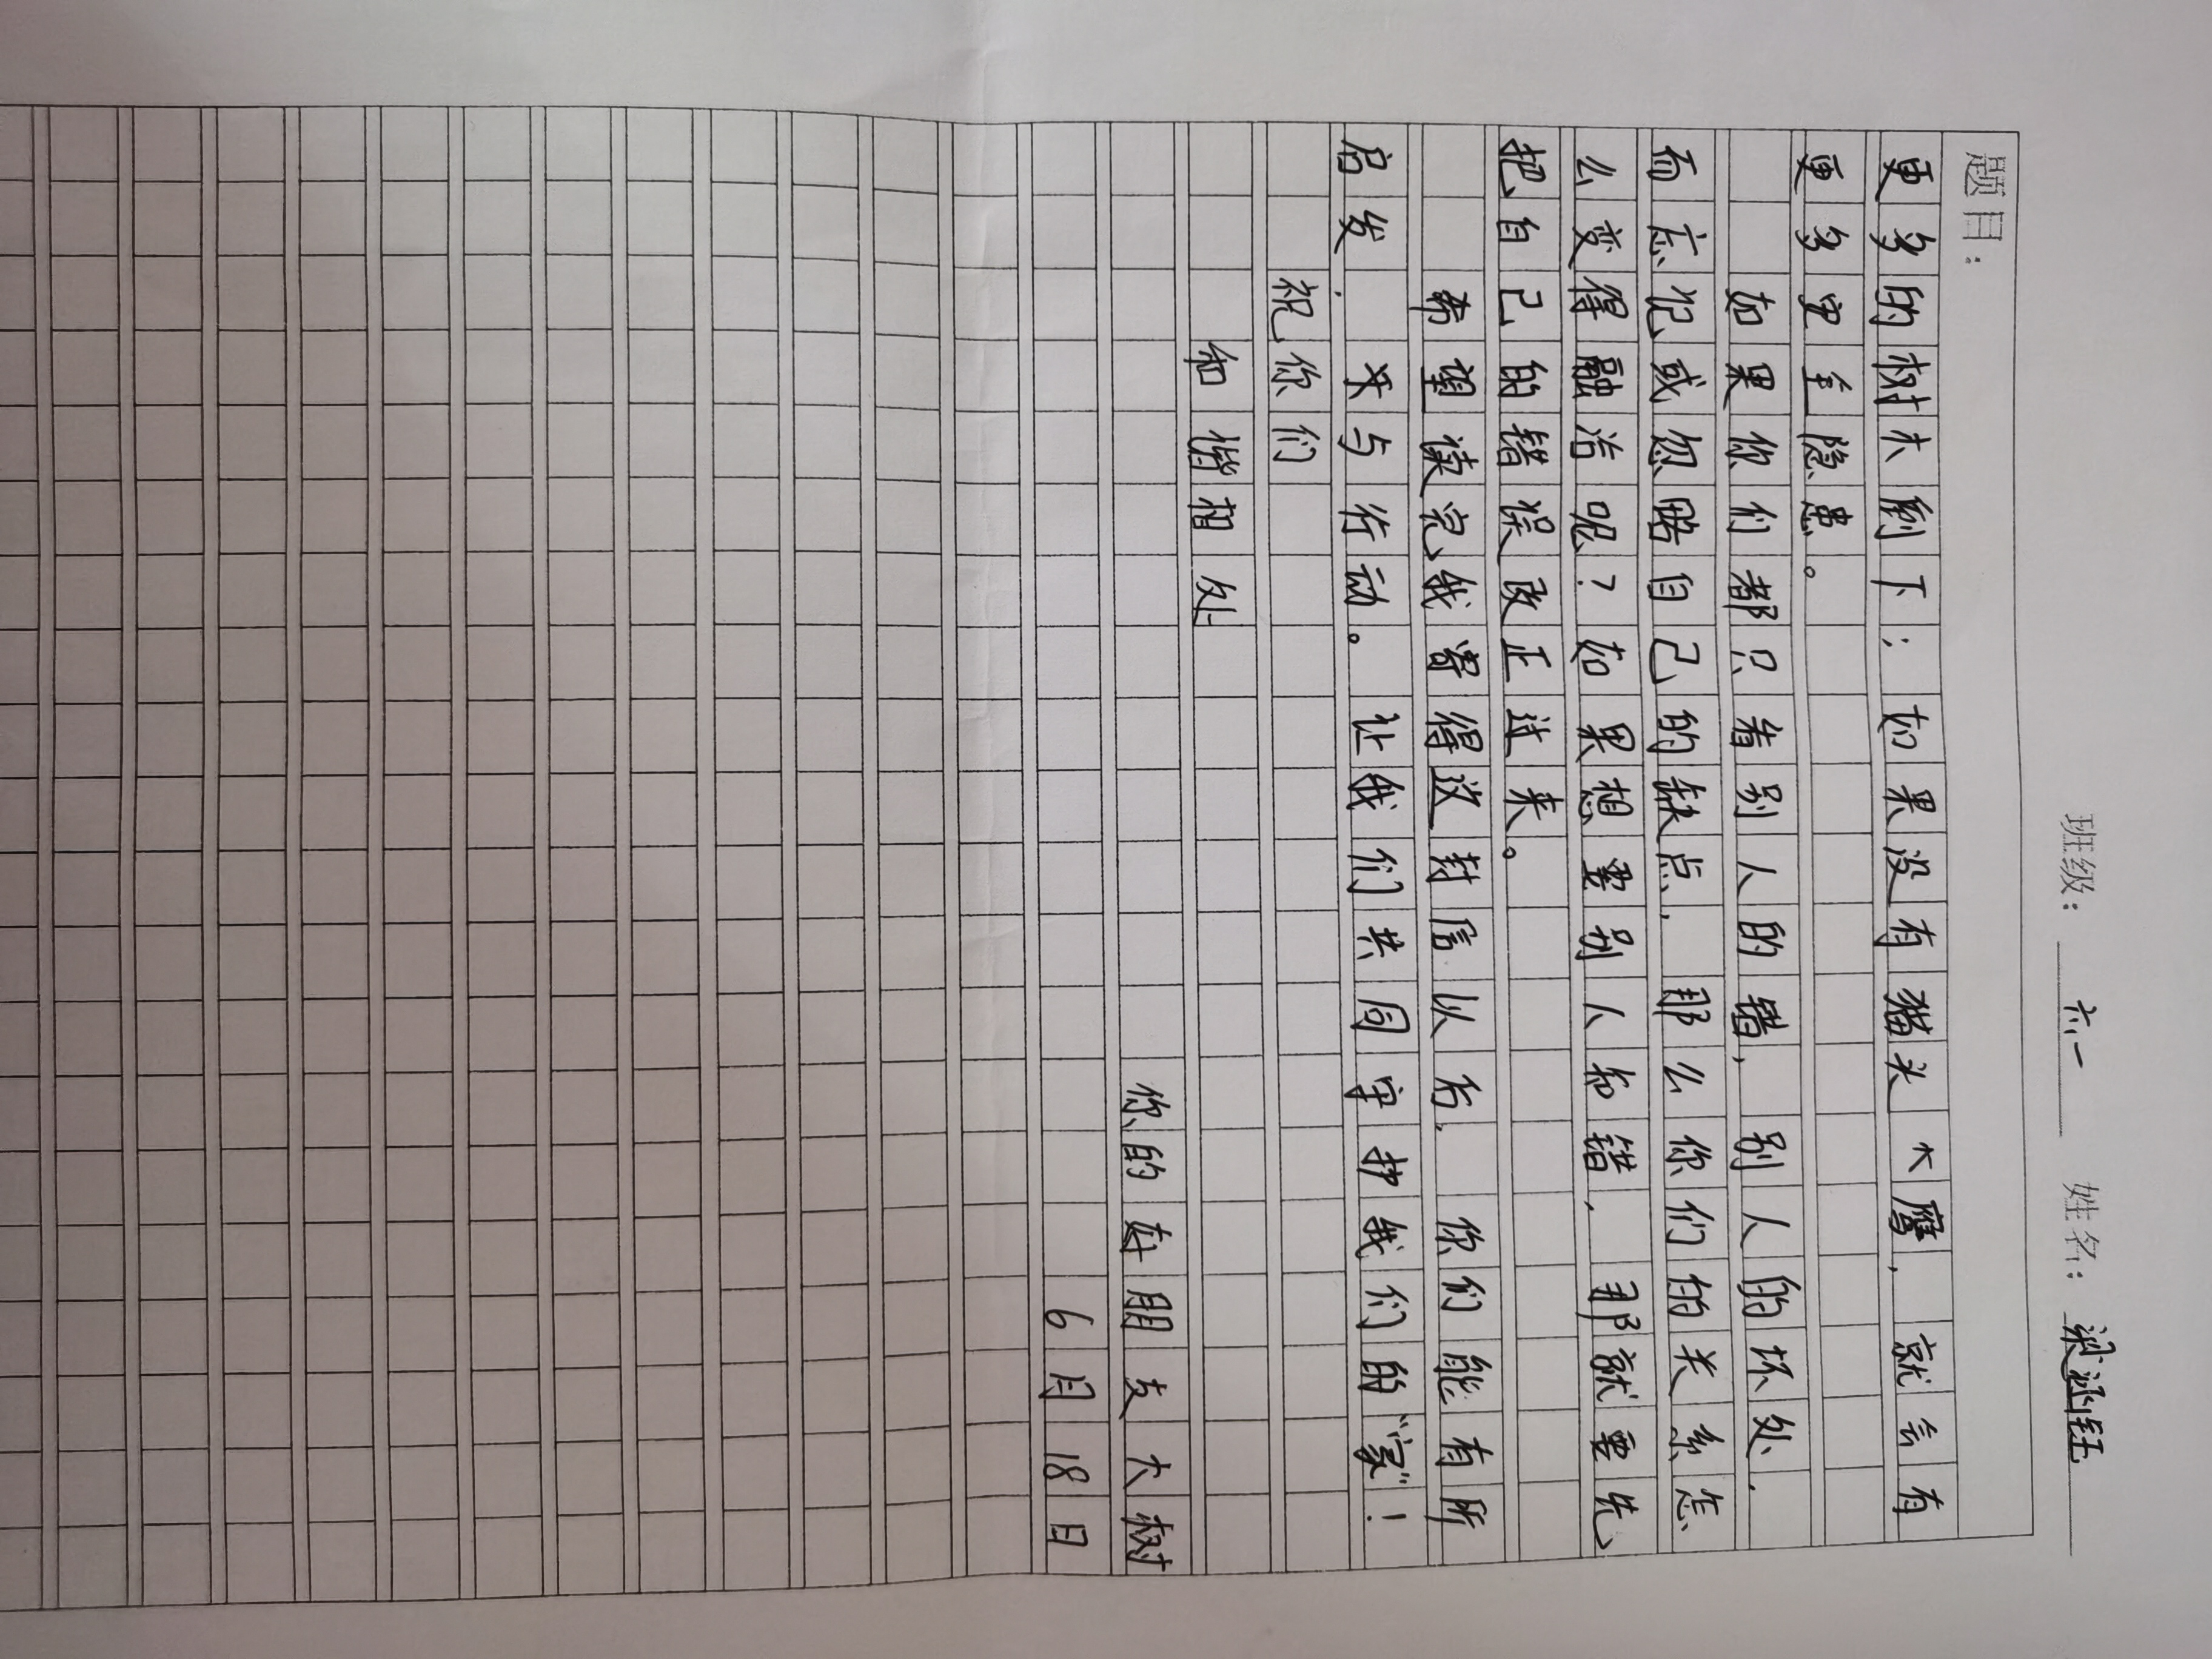 班级：六、一 姓名：梁涵钰
题目：
更多的树木倒下；如果没有猫头鹰，就会有
更多安全隐患。
如果你们都只看别人的错，别人的坏处，
而忘记或忽略自己的缺点，那么你们的关系怎
么变得融洽呢？如果想要别人知错，那就要先
把自己的错误改正过来。
希望读完我写得这封信以后，你们能有所
启发，并与行动。让我们共同守护我们的“家”！
祝你们
和谐相处
你的好朋友大树
6月18日